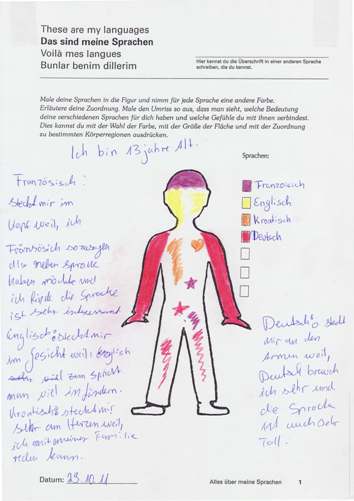 These are my languages
Das sind meine Sprachen
Voilà mes langues
Bunlar benim dillerim
Hier kannst du die Überschrift in einer anderen Sprache
schreiben, die du kannst.
Male deine Sprachen in die Figur und nimm für jede Sprache eine andere Farbe.
Erläutere deine Zuordnung. Male den Umriss so aus, dass man sieht, welche Bedeutung
deine verschiedenen Sprachen für dich haben und welche Gefühle du mit ihnen verbindest.
Dies kannst du mit der Wahl der Farbe, mit der Größe der Fläche und mit der Zuordnung
zu bestimmten Körperregionen ausdrücken.
Ich bin 13 jahre Alt.
Sprachen:
Französisch
Englisch
Kroatisch
Deutsch
Französisch:
steckt mir im
Kopf weil, ich
Französisch
als neben sprache
haben möchte und
ich finde die Sprache
ist sehr
Englisch: steckt mir
im Gesicht weil
viel zum
man viel in
Kroatisch: steckt mir
am Herzen weil,
ich mit meiner Familie
reden kann.
Deutsch: steckt
mir an den
Armen weil,
Deutsch brauch
ich sehr und
die Sprache
ist auch sehr
Toll.
Datum: 23.10.11
Alles über meine Sprachen 1